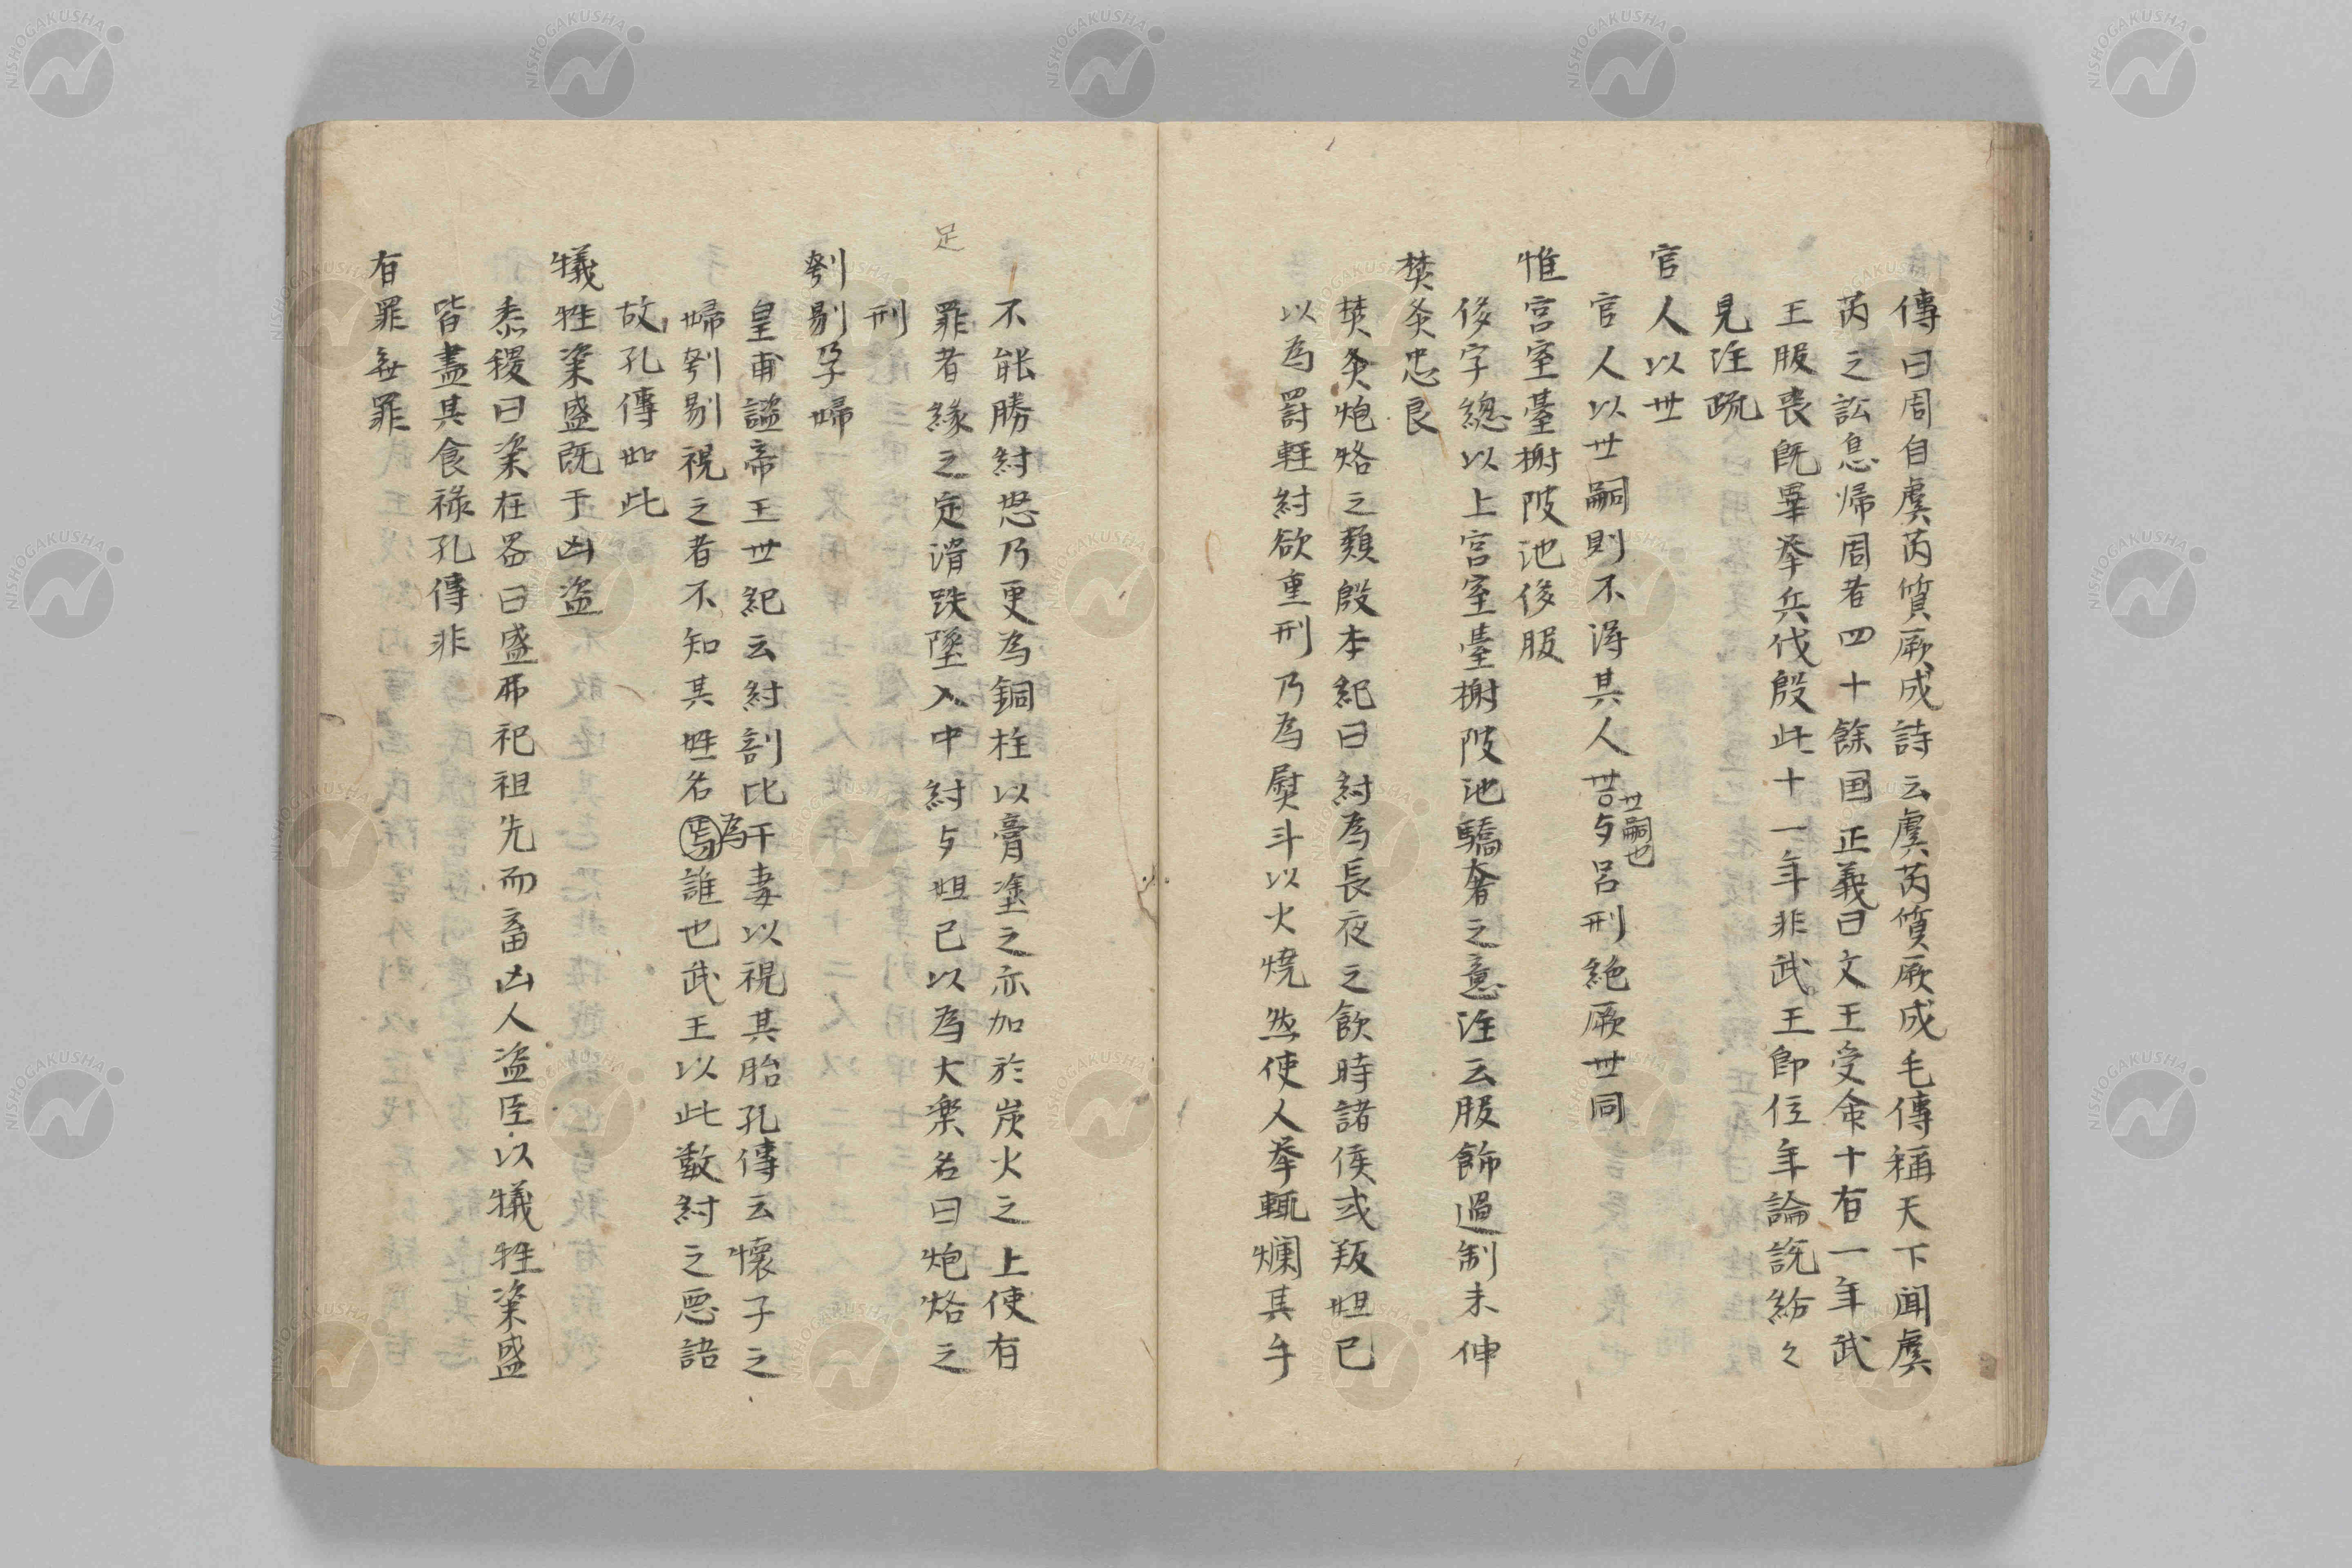 傳曰周自虞芮質厥成詩云虞芮質厥成毛傳稱天下聞虞
芮之訟息帰周者四十餘国正義曰文王受命十有一年武
王服丧既畢举兵伐殷此十一年非武王即位年論説紛々
見注疏
官人以世
官人以世嗣則不得其人世言世嗣也与呂刑絶厥世同
惟宮室臺榭陂池侈服
侈字總以上宮室臺榭陂池驕奢之意注云服飾過制未伸
焚炙忠良
焚炙炮烙之類殷本紀曰紂為長夜之飲時諸侯或叛妲已
以為罰軽紂欲重刑乃為熨斗以火焼然使人举輒爛其手
不能勝紂怒乃更為銅柱以膏塗之亦加於炭火之上使有
足
罪者緣之定滑跌墜入中紂与妲已以為大楽名曰炮烙之
刑
刳剔孕婦
皇甫謐帝王世紀云紂剖比干妻以視其胎孔傳云懷子之
婦刳剔視之者不知其姓名焉為誰也武王以此數紂之悪語
故孔傳如此
犠牲粢盛既于凶盗
黍稷曰粢在器曰盛所祀祖先而畜凶人盗臣以犠牲粢盛
皆盡其食禄孔傳非
有罪無罪
NISHOGAKUSHA